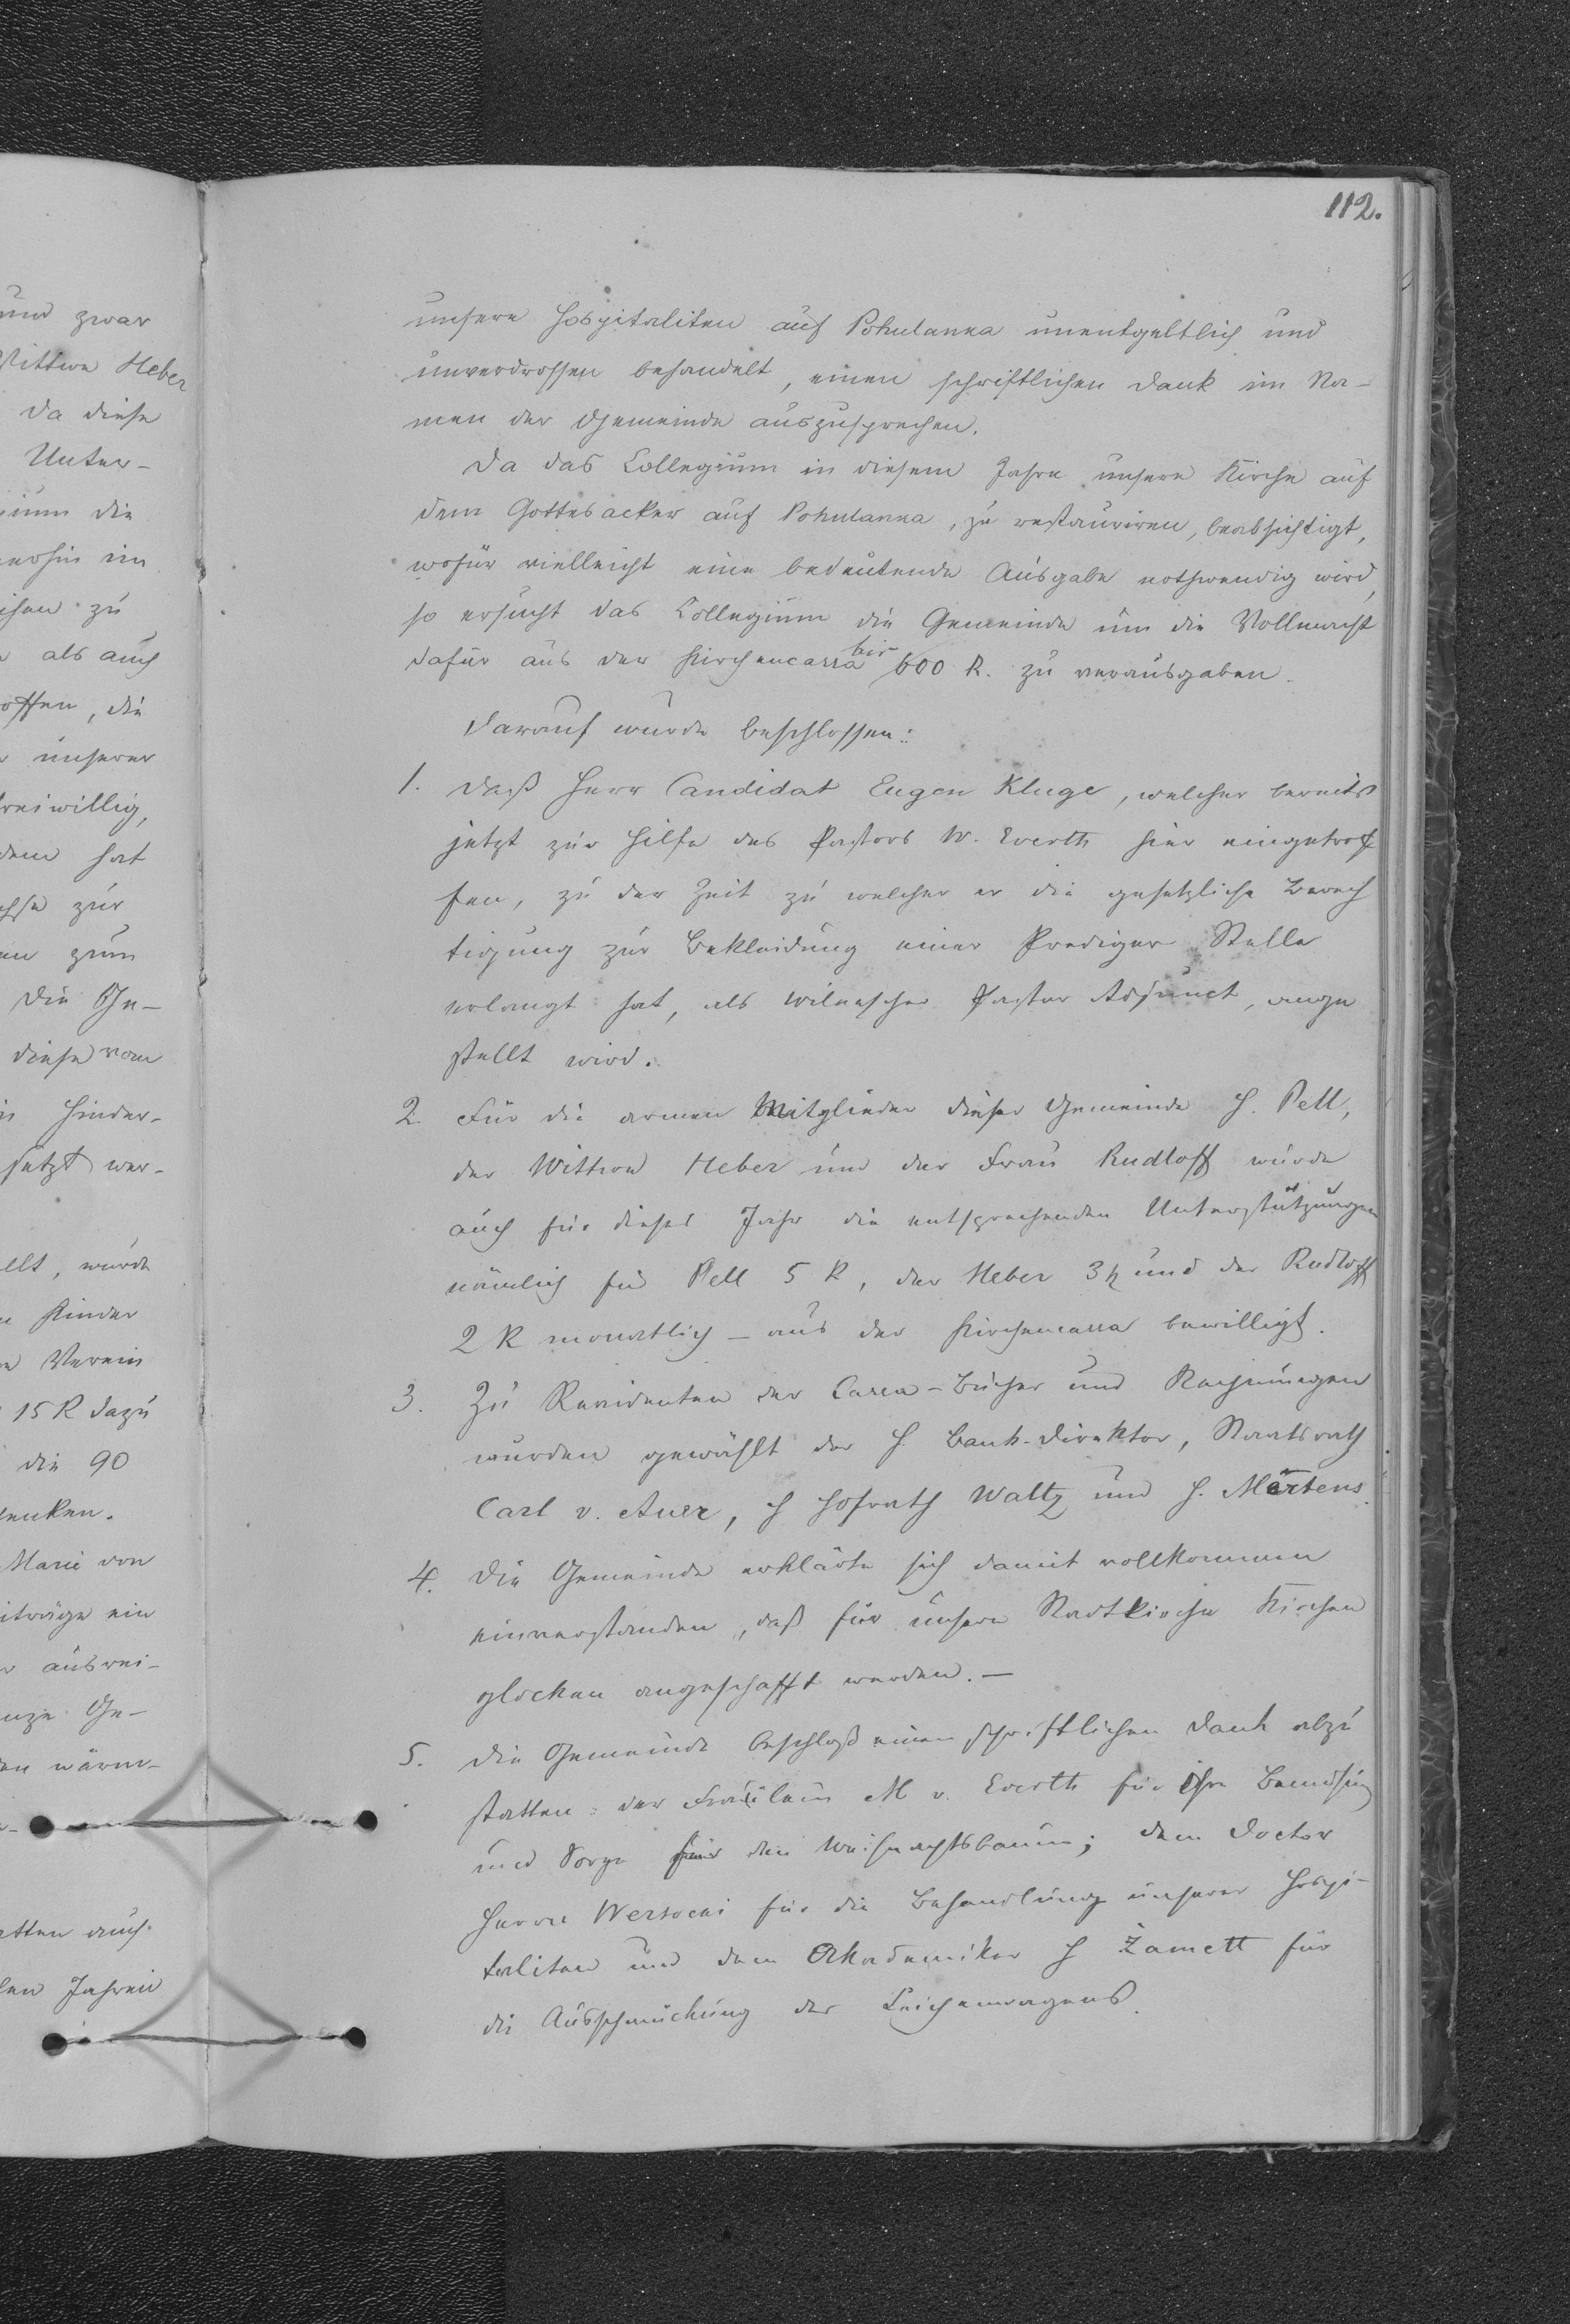 112.
unsere Hospitaliten auf Pohulanka unentgeltlich und
unverdrossen behandelt, einen schriftlichen Dank im Na-
men der Gemeinde auszusprechen.
Da das Collegium in diesem Jahre unsere Kirche auf
dem Gottesacker auf Pohulanka, zu restauriren, beabsichtigt,
wofür vielleicht eine bedeutende Ausgabe nothwendig wird,
so ersucht das Collegium die Gemeinde um die Vollmacht
dafür aus der Kirchencassa bis 600 R. zu verausgaben.
Darauf wurde beschlossen:
1. Daß Herr Candidat Eugen Kluge, welcher bereits
jetzt zur Hilfe des Pastors W. Everth hier eingetrof
fen, zu der Zeit zu welcher er die gesetzliche Berech
tigung zur Bekleidung einer Prediger Stelle
erlangt hat, als wilnascher Pastor Adjunct, ange
stellt wird.
2. Für die armen Mitglieder dieser Gemeinde H. Pell,
der Wittwe Heber und der Frau Rudloff wurde
auch für dieses Jahr die entsprechenden Unterstützungen
nämlich für Pell 5 R, der Heber 3 R und der Rudloff
2 R monatlich – aus der Kirchencassa bewilligt.
3. Zu Revidenten der Cassa-Bücher und Rechnungen
wurden gewählt der H. Bank-Direktor, Staatsrath
Carl v. Auer, H Hofrath Waltz und H. Märtens.
4. Die Gemeinde erklärte sich damit vollkommen
einverstanden, daß für unsere Stadtkirche Kirchen
glocken angeschafft werden. –
5. Die Gemeinde beschloß einen schriftlichen Dank abzu
statten: der Fräulein M v. Everth für ihre Bemühung
und Sorge für den Weihnachtsbaum; dem Doctor
Herrn Wersocki für die Behandlung unserer Hospi-
taliten und dem Akademiker H Zamett für
die Ausschmückung des Leichenwagens.
und zwar
Wittwe Heber
da diese
Unter-
die
im
zu
als auch
offen, die
unserer
freiwillig,
dem hat
zur
zum
die Ge-
diese vom
Hinder-
setzt wer-
llt, wurde
Kinder
Verein
15 R dazu
die 90
enken.
Marie von
iträge ein
auswei-
Ge-
wärm-
atten auch
len Jahren